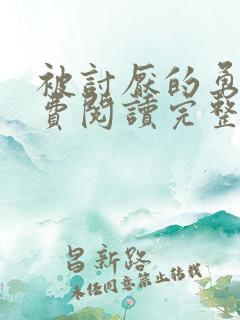 被討厭的勇
費閱讀完整
昌新路
未经同意禁止转载